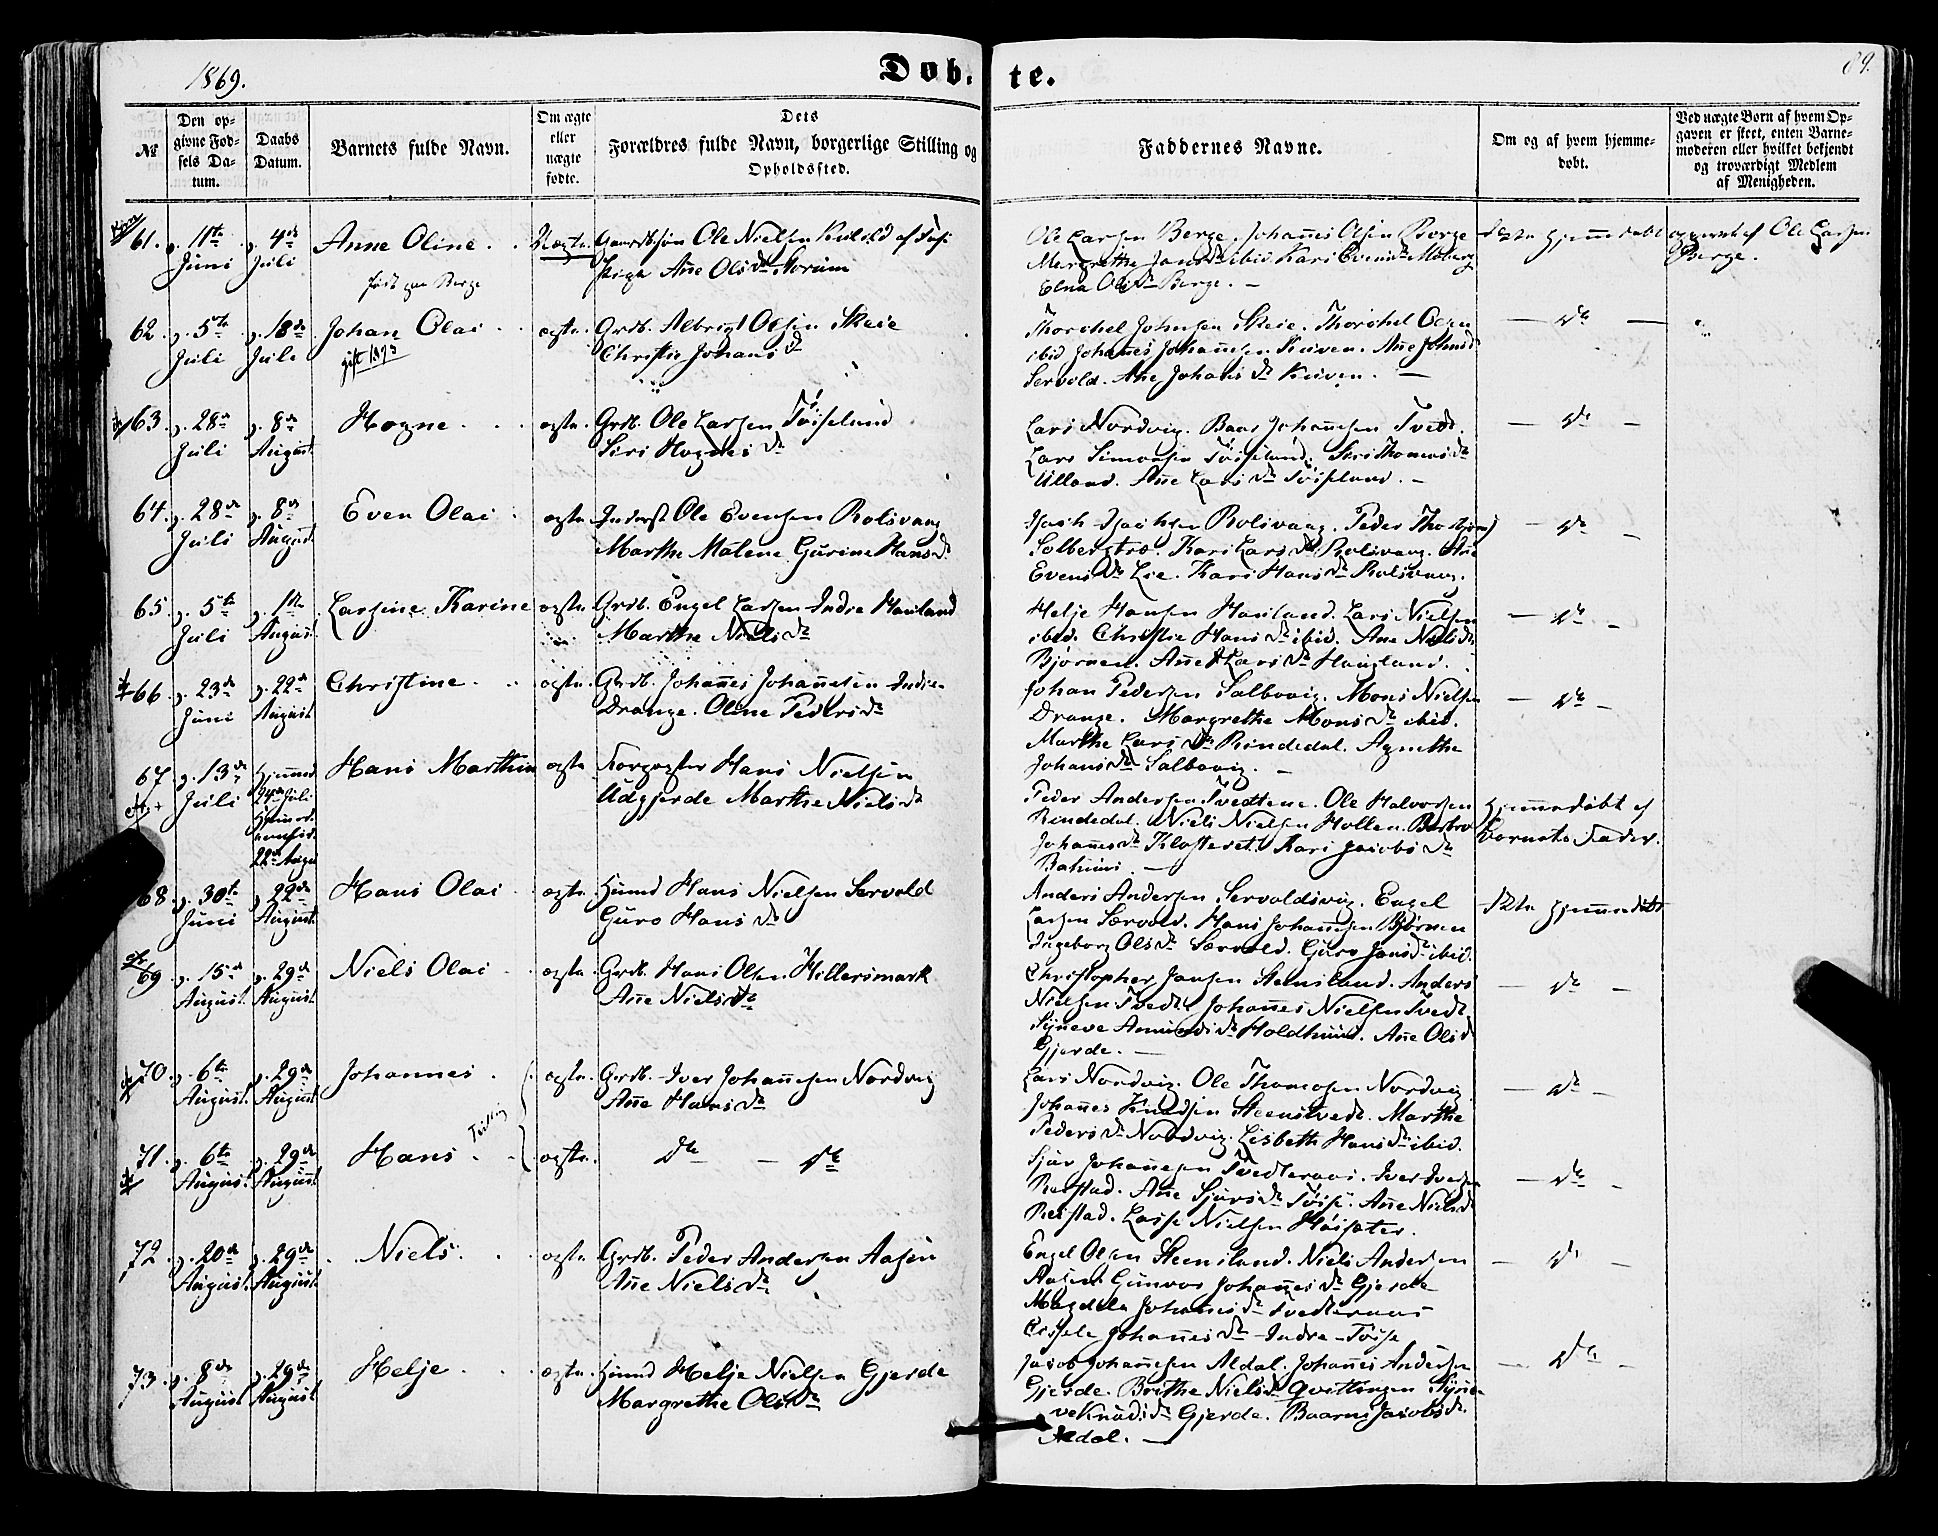 1869.
Døb.
te.
89.
№
Den op-
givne Fød-
sels Da-
tum.
Daabs
Datum.
Barnets fulde Navn.
Om ægte
eller
uægte
fødte.
Dets
Forældres fulde Navn, borgerlige Stilling og
Opholdssted.
Faddernes Navne.
Om og af hvem hjemme-
døbt.
Ved uægte Børn af hvem Op-
gaven er skeet, enten Barne-
moderen eller hvilket bekjendt
og troværdigt Medlem
af Menigheden.
61. d. 11te Juni
d. 4de Juli
Anne Oline
født paa Berge
Uægte
Gaardbs.søn Ole Nielsen af
Pige Ane Olsdr
Ole Larsen Berge. Johannes Olsen Berge
Margrethe Jonsdr ibid. Kari Evensdr
Elna Olsdr Berge.
Ikke hjemmedøbt
opgivet af Ole Larsen
Berge.
62. d. 5te Juli
d. 18de Juli
Johan Olai
ægte
Grdb. Albrigt Olsen Skeie
Christie Johansdr
Thorchel Johnsen Skeie. Thorchel Olsen
ibid Johannes Johannesen Kuiven. Ane
Servold. Ane Johansdr Kuiven.
dto
63. d. 28de Juli
d. 8de August
Hogne
ægte
Grdb. Ole Larsen
Siri Hognesdr
Lars Nordvig. Baar Johannesen Tvedt.
Lars Simonsen Siri Thomasdr
Ulland. Ane Larsdr
dto
64. d. 28de Juli
d. 8de August
Even Olai
ægte
Inderst Ole Evensen Rolsvaag
Marthe Malene Gurine Hansdr
Rolsvaag. Peder
Kari Larsdr Rolsvaag. Ane
Evensdr Lie. Kari Hansdr Rolsvaag.
dto
65. d. 5te Juli
d. 1ste August
Larsine Karine
ægte
Grdb. Engel Larsen Indre Hauland
Marthe Nielsdr
Helje Hansen Hauland. Lars Nielsen
ibid. Christie Hansdr ibid. Ane Nielsdr
Bjørnen. Ane Larsdr Haugland.
dto
66. d. 23de Juni
d. 22de August
Christine
ægte
Grdb. Johannes Johannesen Indre
Drange. Oline Pedersdr
Johan Pedersen Salbovig. Mons Nielsen
Drange. Margrethe Monsdr ibid.
Marthe Larsdr Rindedal. Agnethe
Johansdr Salbovig.
dto
67. d. 13de Juli
Hjemmed.
24de Juli
22de August
Hans Marthin
ægte
Hans Nielsen
Udgjerde Marthe Nielsdr
Peder Andersen Tvedtene. Ole Halvorsen
Rindedal. Niels Nielsen Hollen. Barbro
Johannesdr Klosteret. Kari Jacobsdr
hjemmedøbt af
Barnets Fader.
68. d. 30te Juni
d. 22de August
Hans Olai
ægte
Huusmd Hans Nielsen Servold
Guro Hansdr
Anders Andersen Servoldsvig. Engel
Larsen Særvold. Hans Johannesen Bjørnen
Ingeborg Olsdr Særvold. Guro Jansdr ibid.
Ikke hjemmedøbt
69. d. 15de August
d. 29de August
Niels Olai
ægte
Grdb. Hans Olsen Hillersmark
Ane Nielsdr
Christopher Jansen Steensland. Anders
Nielsen Tvedt. Johannes Nielsen Tvedt
Syneve Amundsdr Holdhuus. Ane Olsdr
Gjerde.
dto
70. d. 6te August
d. 29de August
Johannes
Tvilling
ægte
Grdb. Iver Johannesen Nordvig
Ane Hansdr
Lars Nordvig. Ole Thomasen Nordvig
Johannes Knudsen Steenstvedt. Marthe
Pedersdr Nordvig. Lisbeth Hansdr ibid.
dto
71. d. 6te August
d. 29de August
Hans
ægte
dto dto
Sjur Johannesen Tvedteraas. Iver Iversen
Reistad. Ane Sjursdr Ane Nielsdr
Reistad. Lasse Nielsen Høisæter.
dto
72. d. 20de August
d. 29de August
Niels
ægte
Grdb. Peder Andersen Aasen
Ane Nielsdr
Engel Olsen Steensland. Niels Andersen
Aasen. Gunvor Johannesdr Gjerde
Magdela Johannesdr Tvedteraas
Johannesdr Indre
dto
73. d. 8de August
d. 29de August
Helje
ægte
Huusmd Helje Nielsen Gjerde
Margrethe Olsdr
Jacob Johannesen Aldal. Johannes Andersen
Gjerde. Brithe Nielsdr Qvittingen Syne-
ve Knudsdr Gjerde. Jacobsdr
Aldal.
dto